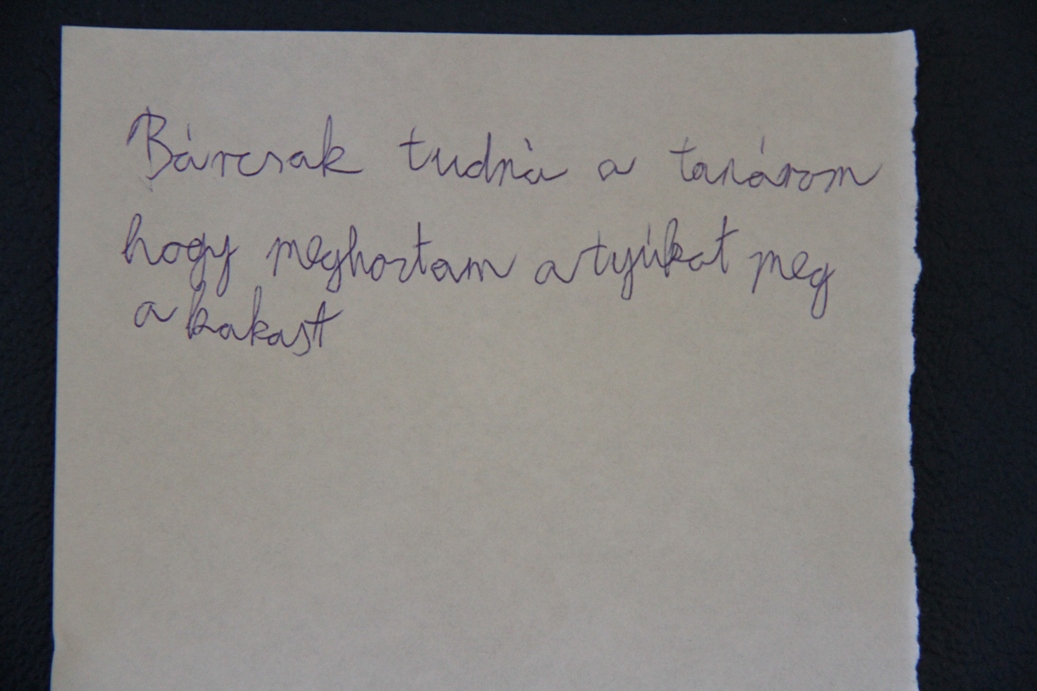 Bárcsak tudná a tanárom
hogy meghoztam a tyúkot meg
a kakast